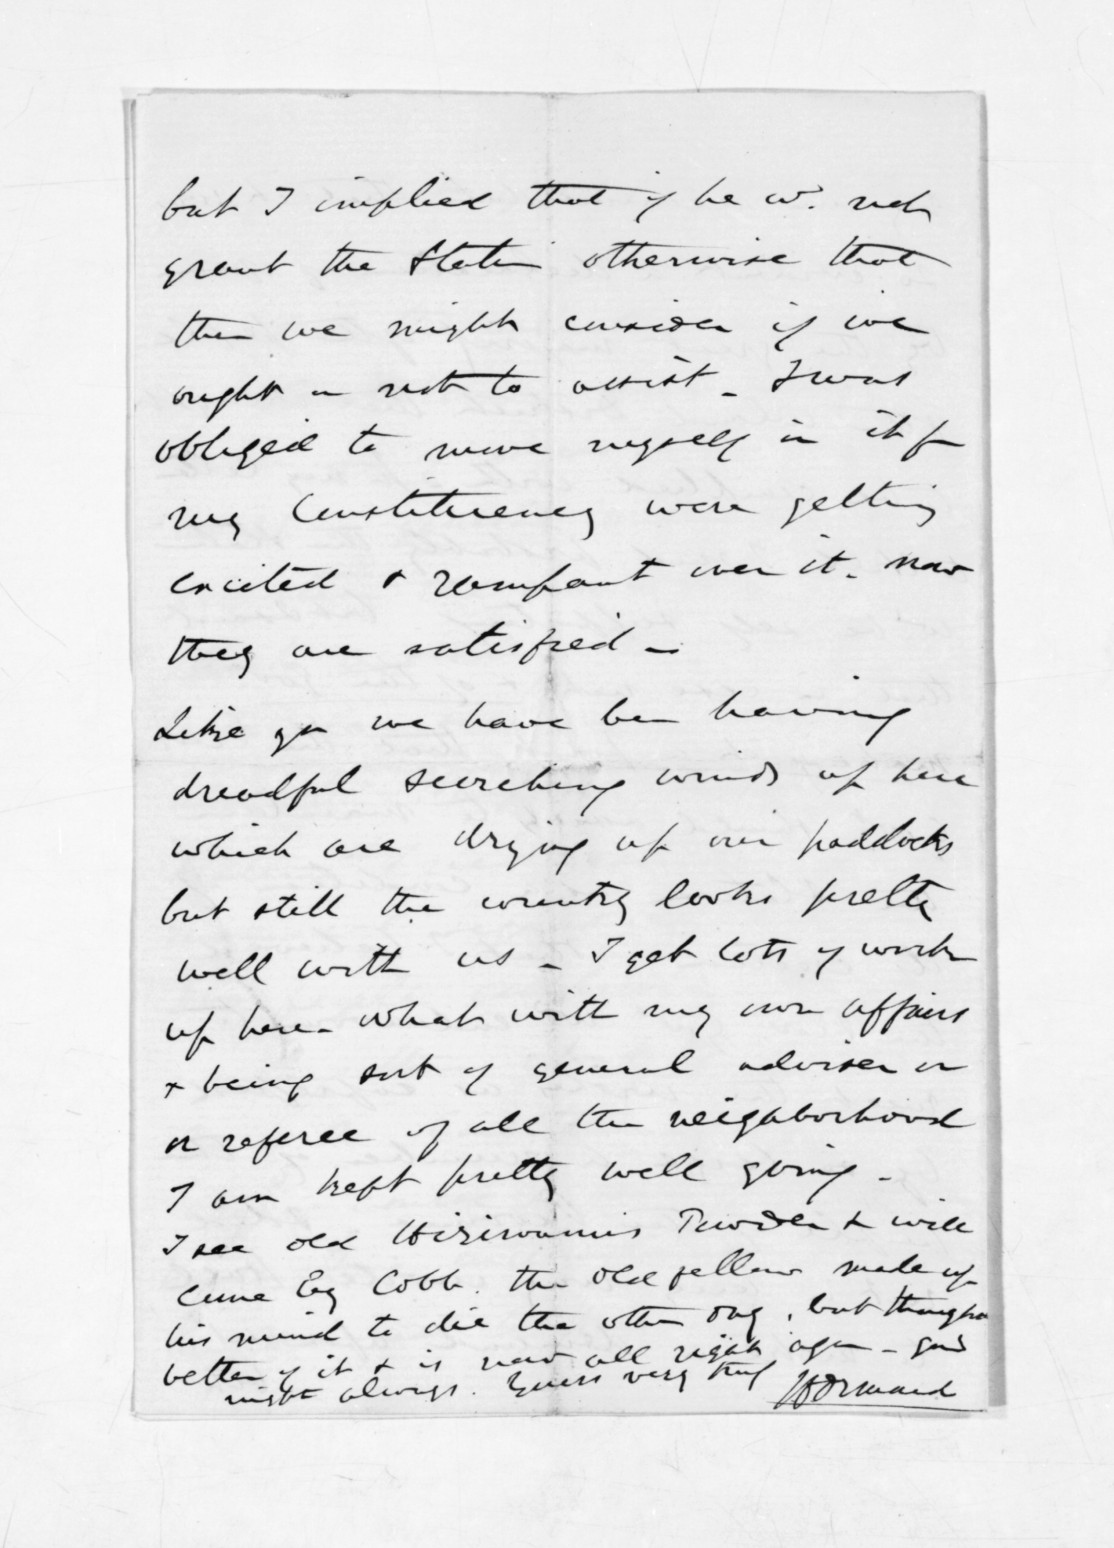 but I implied that if he wd. not
grant the Station otherwise that
then we might consider if we
ought or not to assist - I was
obliged to move myself in it for
my Constituency were getting
excited & rampant over it. now
they are satisfied -
Like you we have been having
dreadful searching winds up here
which are drying up our paddocks
but still the country looks pretty
well with us - I get lots of work
up here - what with my own affairs
& being sort of general adviser or
or referee of all the neighborhood
I am kept pretty well going -
I see old & will
Cobb. the old fellow made up
his mind to die the other day, but thought
better of it & is now all right again - good
night always. Yours very truly
JDOrmond